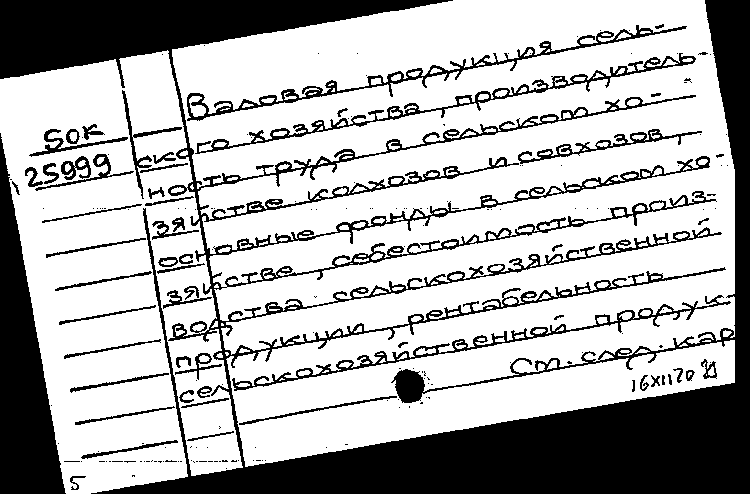 50к
25999
Валовая продукция сель-
ского хозяйства, производитель-
ность труда в сельском хо-
зяйстве колхозов и совхозов,
основные фонды в сельском хо-
зяйстве, себестоимость произ-
водства сельскохозяйственной
продукции, рентабельность
сельскохозяйственной продук-
См. след. кар
5